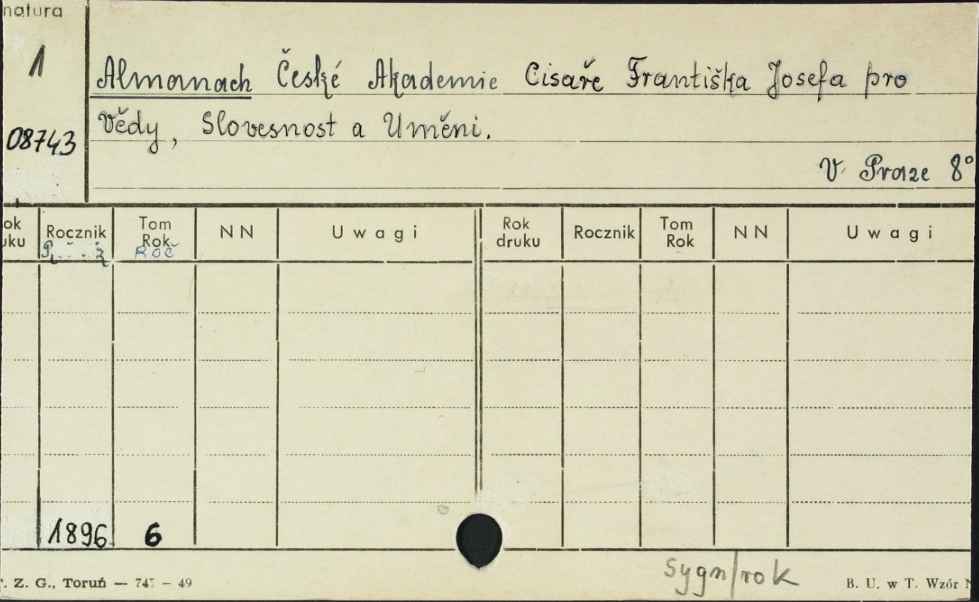 natura
1
08743
Almanach České Akademie Cisaře Františka Josefa pro
Vědy, Slovesnost a Uměni.
V Praze 8°
ok uku Rocznik Tom Rok NN Uwagi Rok druku Rocznik Tom Rok NN Uwagi
Roč
1896 6
sygn/rok
. Z. G., Toruń — 747 — 49 B. U. w T. Wzór